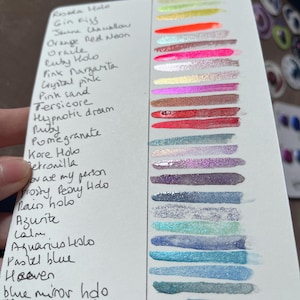 Rosada Holo
Gin Fizz
Janna Chameleon
Orange Red Neon
Oracle
Ruby Holo
Pink Margarita
Crystal pink
Pink Sand
Persicore
Hypnotic dream
Ruby
Pomegranate
Kore Holo
Petronilla
You are my person
Frosty Peony Holo
Rain holo
Azurite
Calm
Aquarius Holo
Pastel blue
Heaven
blue mirror holo